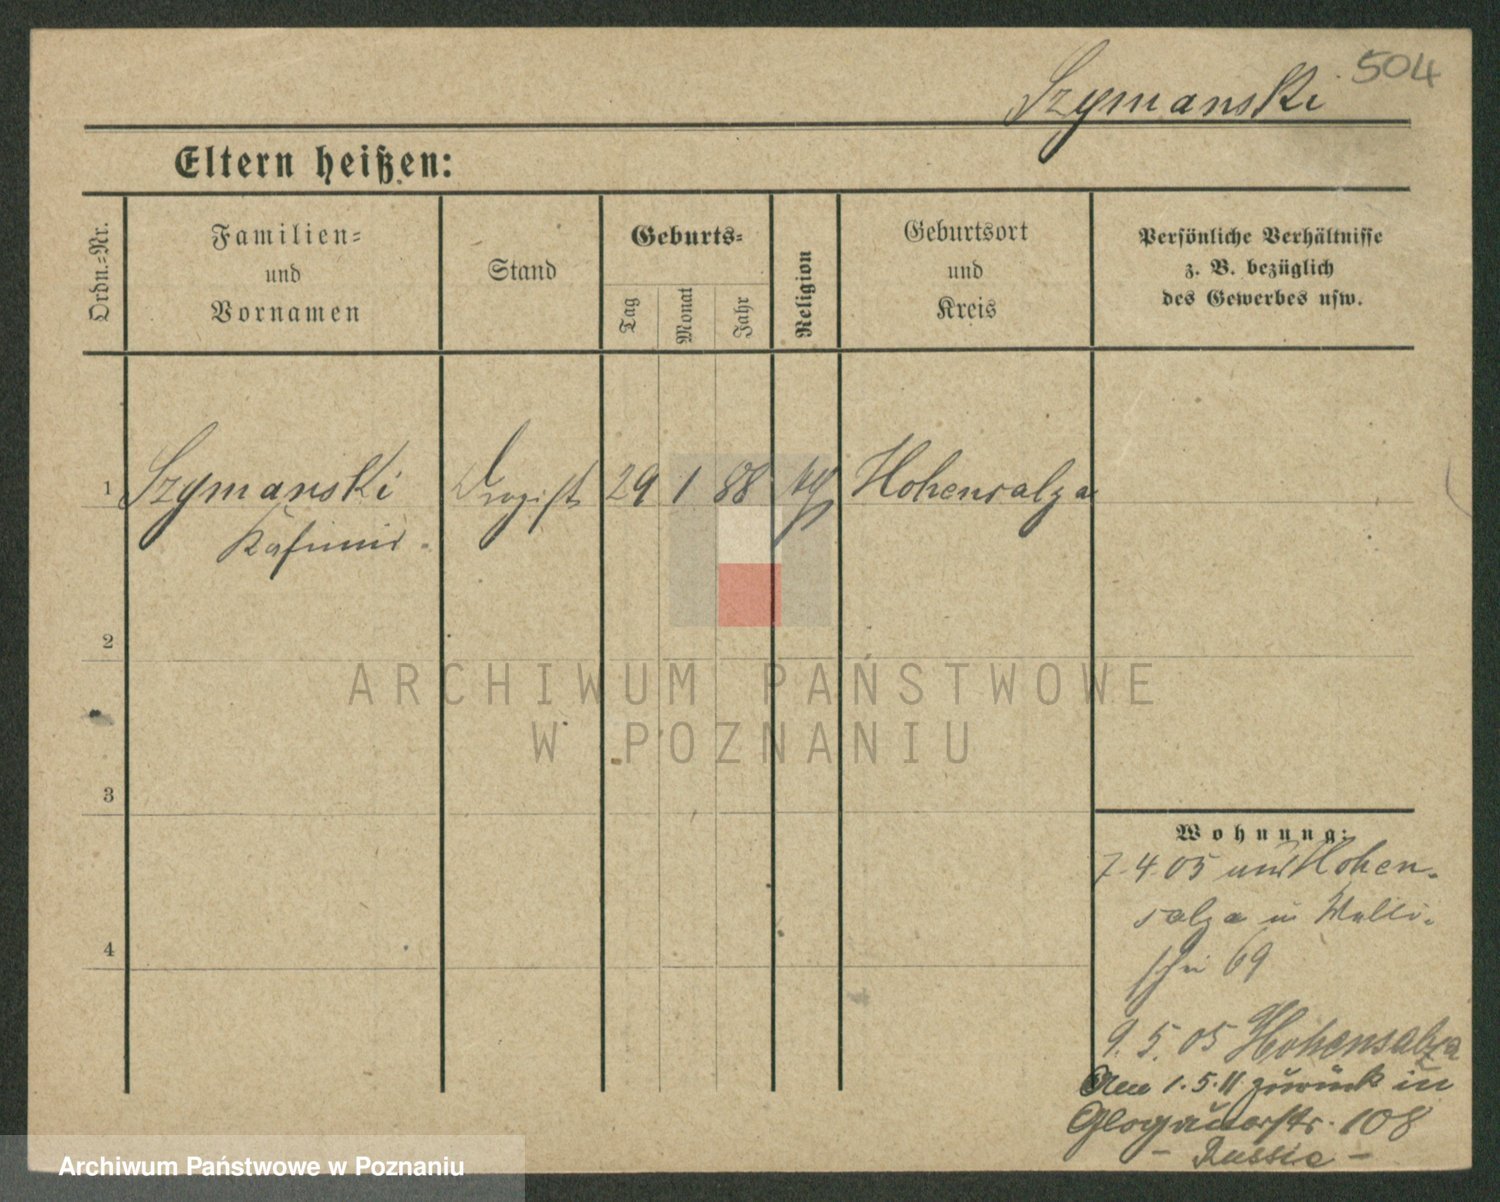 504
Szymanski
Eltern heißen:
Ordn.-Nr.
Familien-
und
Vornamen
Stand
Geburts-
Tag
Monat
Jahr
Religion
Geburtsort
und
Kreis
Persönliche Verhältnisse
z. B. bezüglich
des Gewerbes usw.
1 Szymanski Drogist 29 1 88 Hohensalza
Kasimir
2
ARCHIWUM PAŃSTWOWE
W POZNANIU
3
4
Wohnung:
7. 4. 05 aus Hohen-
salza in Walli-
schei 69
9. 5. 05 Hohensalza
Am 1. 5. 11 zurück in
Glogauerstr. 108
Archiwum Państwowe w Poznaniu